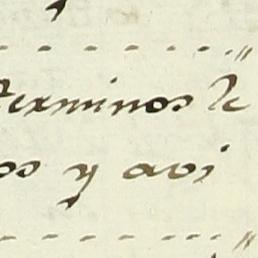 terminos le
os y avi